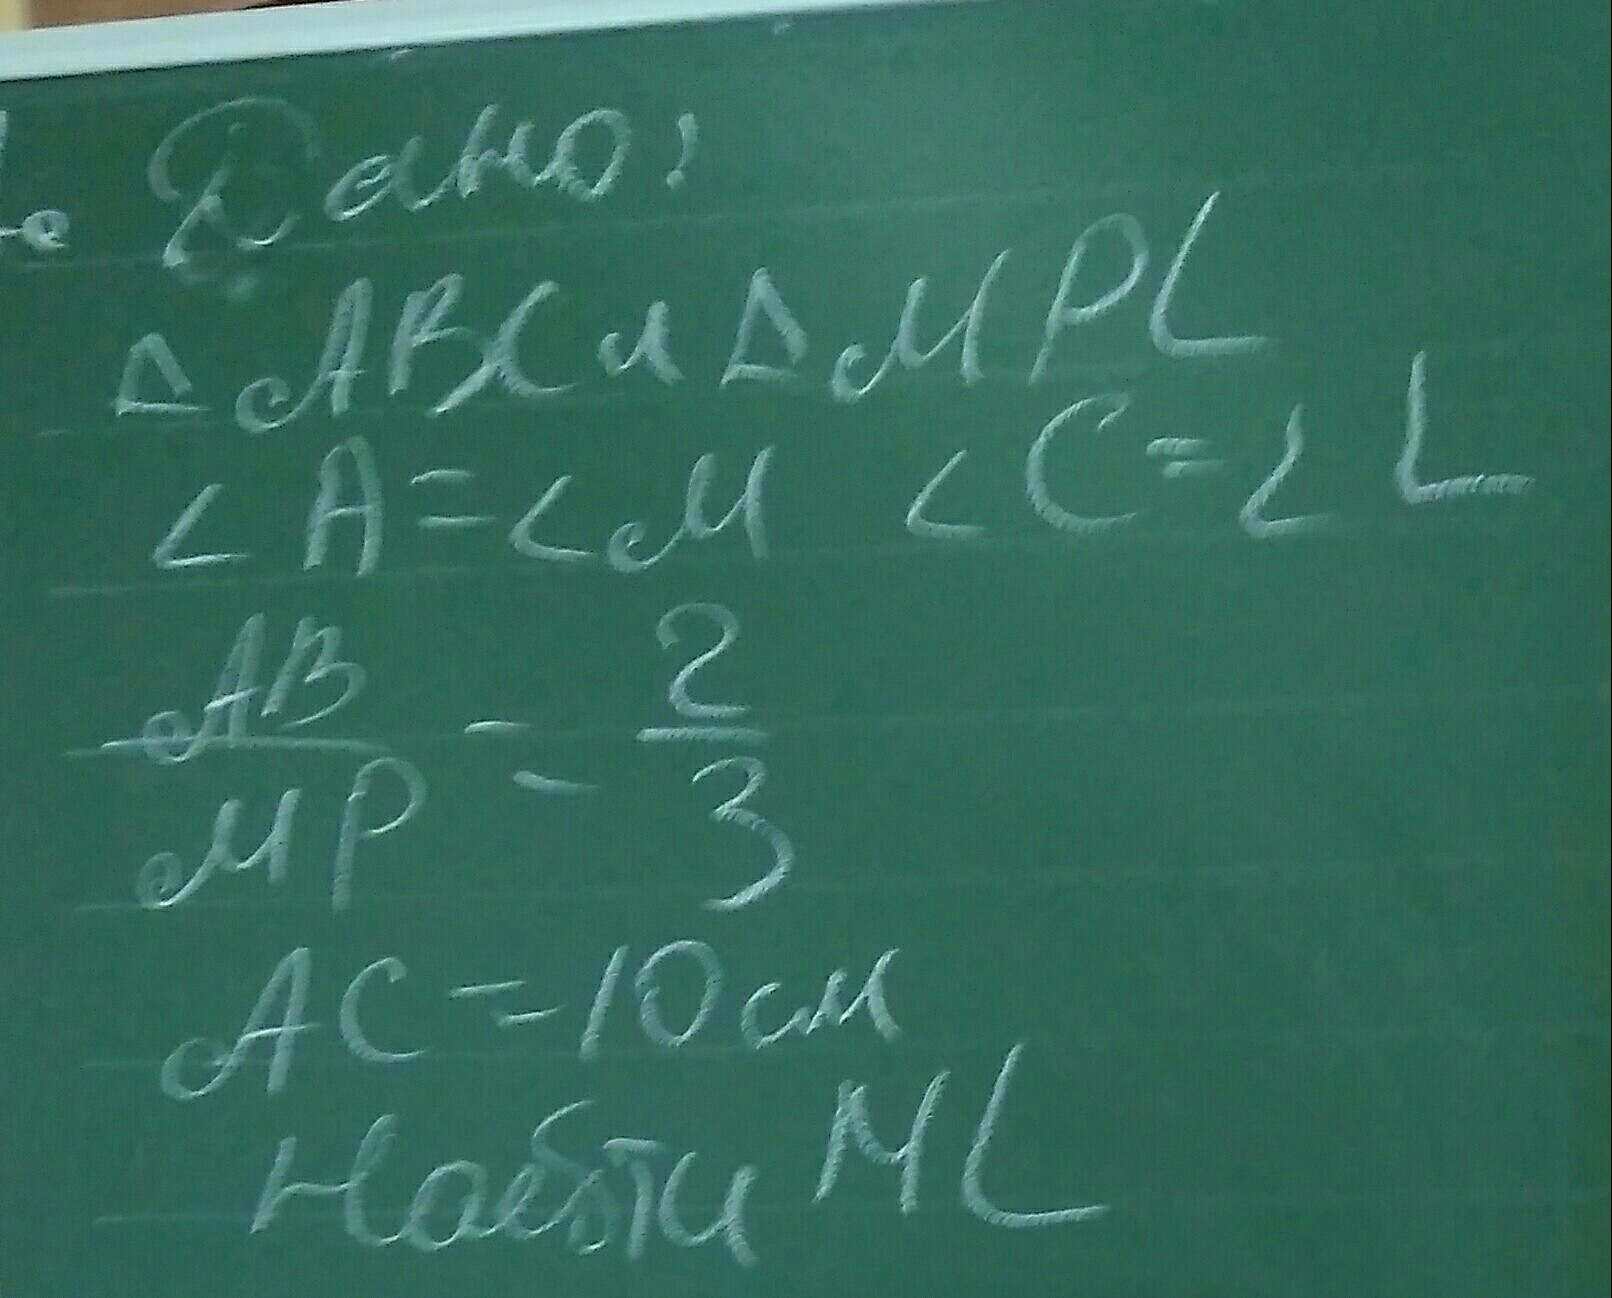 Дано:
Δ ABC и Δ MPL
∠ A = ∠ M ∠ C = ∠ L
AB/MP = 2/3
AC = 10 см
Найти ML